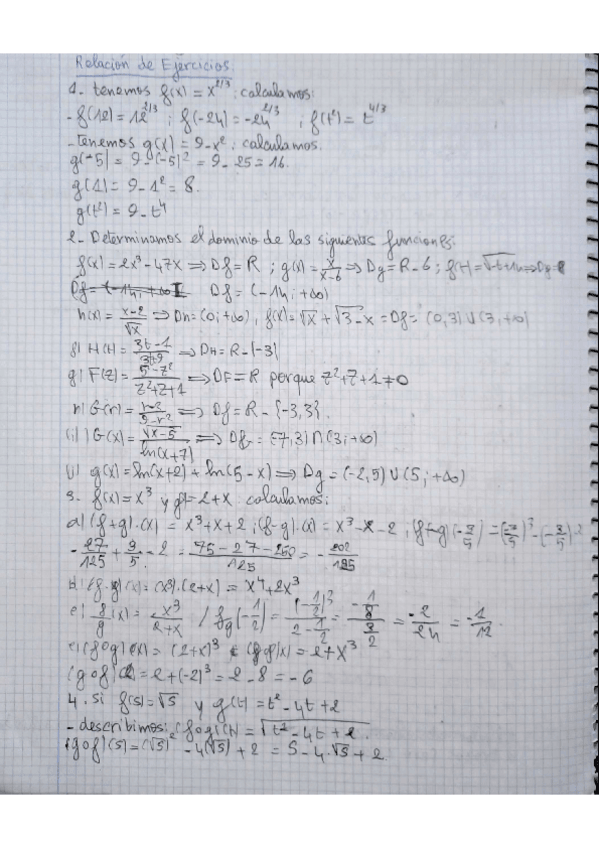 Relación de Ejercicios
1- tenemos f(x) = x^2/3 : calculamos:
- f(12) = 12^2/3 ; f(-24) = -24^2/3 ; f(t²) = t^4/3
- tenemos g(x) = 9 - x² ; calculamos.
g(-5) = 9 - (-5)² = 9 - 25 = 16.
g(1) = 9 - 1² = 8.
g(t²) = 9 - t⁴
2- Determinamos el dominio de las siguientes funciones:
f(x) = 2x³ - 47x ⟹ Df = R ; g(x) = x/(x-6) ⟹ Dg = R - 6 ; f(t) =
Df = (-14; +∞)
h(x) = (x-2)/√x ⟹ Dh = (0; +∞) , f(x) = √x + √3-x = Df = (0,3) ∪ (3, +∞)
H(t) = (3t-1)/(3t+9) ⟹ DH = R - {-3}
g) F(z) = (5-z²)/(z²+z+1) ⟹ DF = R porque z²+z+1 ≠ 0
h) G(r) = (r-3)/(9-r²) ⟹ Df = R - {-3,3}.
(i) G(x) = √x-5/ln(x+7) ⟹ Df = (-7,3) ∩ (3; +∞)
g(x) = ln(x+2) + ln(5-x) ⟹ Dg = (-2,5) ∪ (5; +∞)
3. f(x) = x³ y g = 2+x calculamos:
a) (f+g).(x) = x³+x+2 ; (f-g).(x) = x³-x-2 ; (f-g)(-3/5) = (-3/5)³ - (-3/5) - 2
- 27/125 + 3/5 - 2 = (75-27-250)/125 = - 202/125
(f.g)(x) = (x³).(2+x) = x⁴+2x³
f/g (x) = x³/(2+x) / f/g(-1/2) = (-1/2)³/(2-1/2) = (-1/8)/(3/2) = -2/24 = -1/12.
(fog)(x) = (2+x)³ (gof)(x) = 2+x³
(gof) = 2+(-2)³ = 2-8 = -6
4. si f(s) = √s y g(t) = t²-4t+2
- describimos: (fog)(t) = √t²-4t+2.
(gof)(s) = (√s)² - 4(√s) + 2 = S - 4.√s + 2